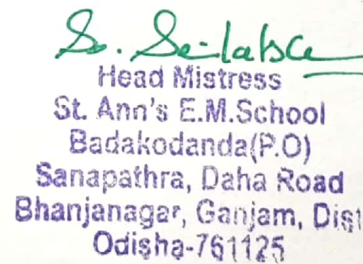 Head Mistress
St. Ann's E.M.School
Badakodanda(P.O)
Sanapathra, Daha Road
Bhanjanagar, Ganjam, Dist
Odisha-761125